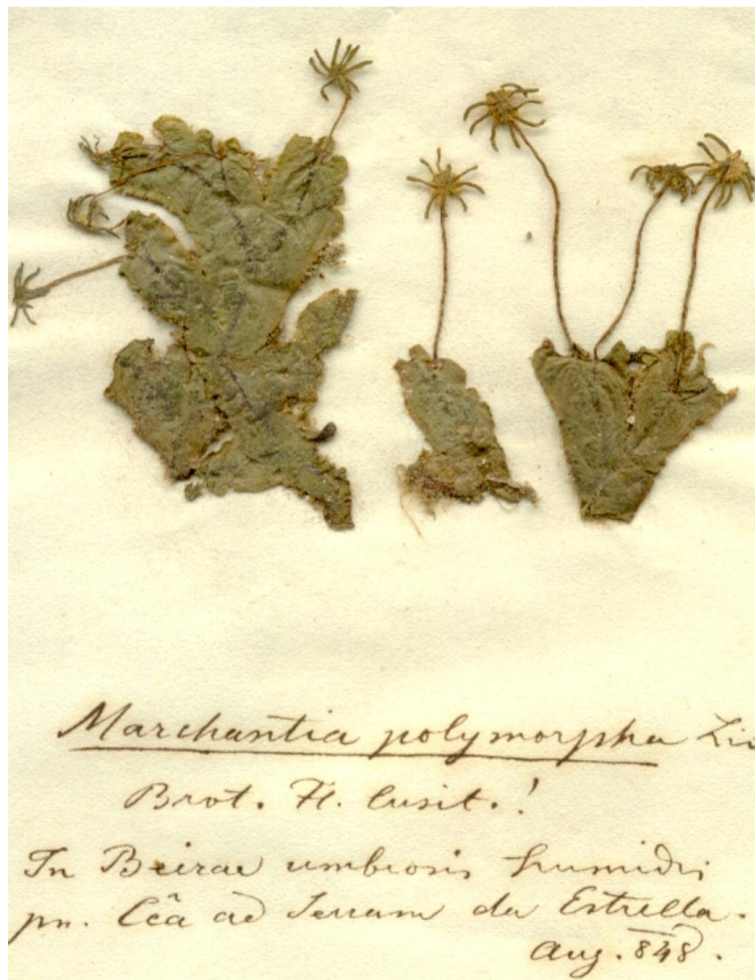 Marchantia polymorpha Lin
Brot. Fl. lusit. !
In Beirae umbrosis humidis
pr. Cêa ad Serram da Estrella.
Aug. 848.